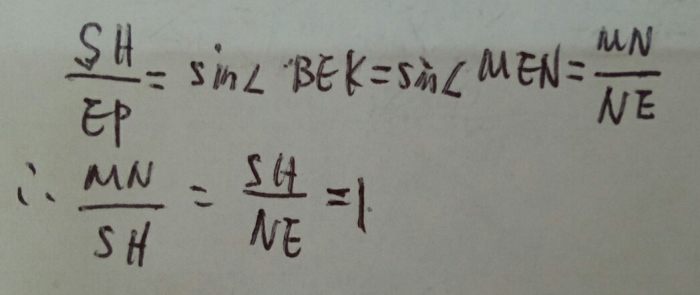 SH/EP = sin∠BEK = sin∠MEN = MN/NE
∴ MN/SH = SH/NE = 1